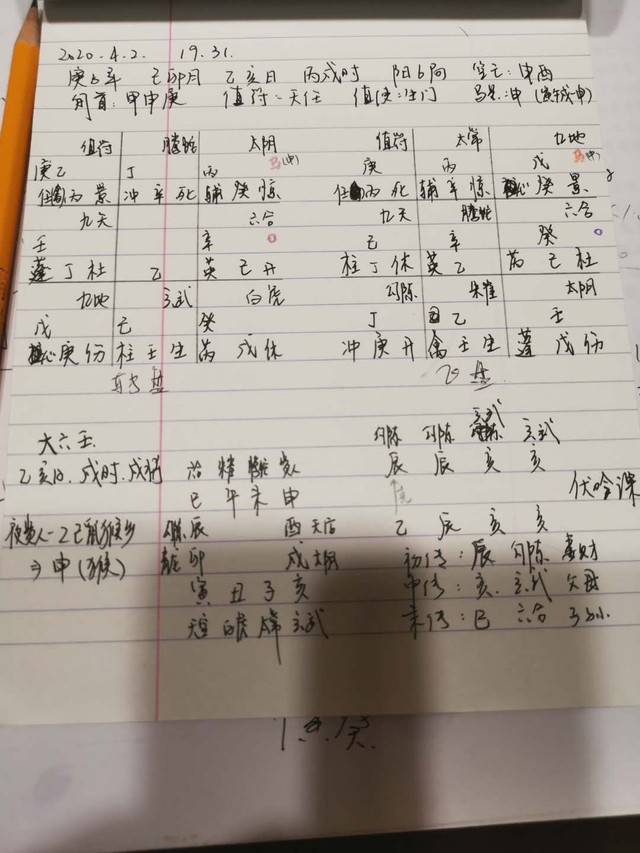 2020.4.2. 19.31.
庚子年 己卯月 乙亥日 丙戌时 阳6局 空亡:申酉
旬首:甲申庚 值符:天任 值使:生门 马星:申(寅午戌-申)
值符 螣蛇 太阴 值符 太常 九地
庚乙 丁 丙 马(申) 庚 丙 戊 马(申)
任 丙景 冲辛死 辅癸惊 任 丙死 辅辛惊 心癸景
九天 六合 九天 螣蛇 六合
壬 辛 己 辛 癸
蓬丁杜 乙 英己开 柱丁休 英乙 芮己杜
九地 玄武 白虎 勾陈 朱雀 太阴
戊 己 癸 丁 乙 壬
心庚伤 柱壬生 芮戊休 冲庚开 禽壬生 蓬戊伤
转盘 飞盘
大六壬 勾陈 勾陈 玄武 玄武
乙亥日.戌时.戌将 合 雀 蛇 贵人 辰 辰 亥 亥
巳午未申 伏吟课
勾陈 辰 酉 天后 乙 辰 亥 亥
贵人-乙己鼠猴乡 青龙 卯 戌 太阴 初传:辰 勾陈 妻财
→申(猴) 寅丑子亥 中传:亥 玄武 父母
天空 白虎 太常 玄武 末传:巳 六合 子孙